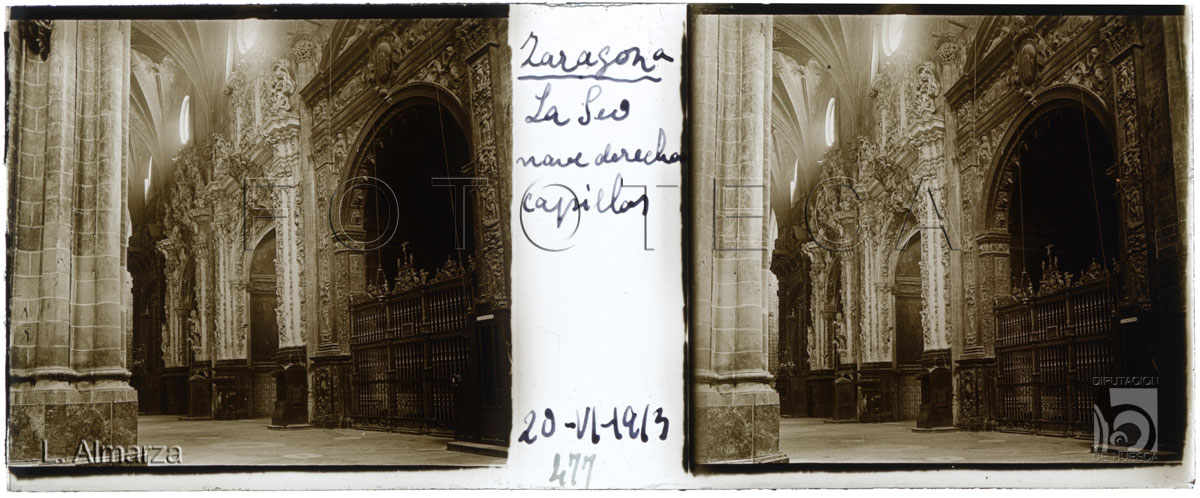 Zaragoza
La Seo
nave derecha
capillas
20-VI-1913
477
FOTOTECA
L. Almarza
DIPUTACIÓN
DE HUESCA